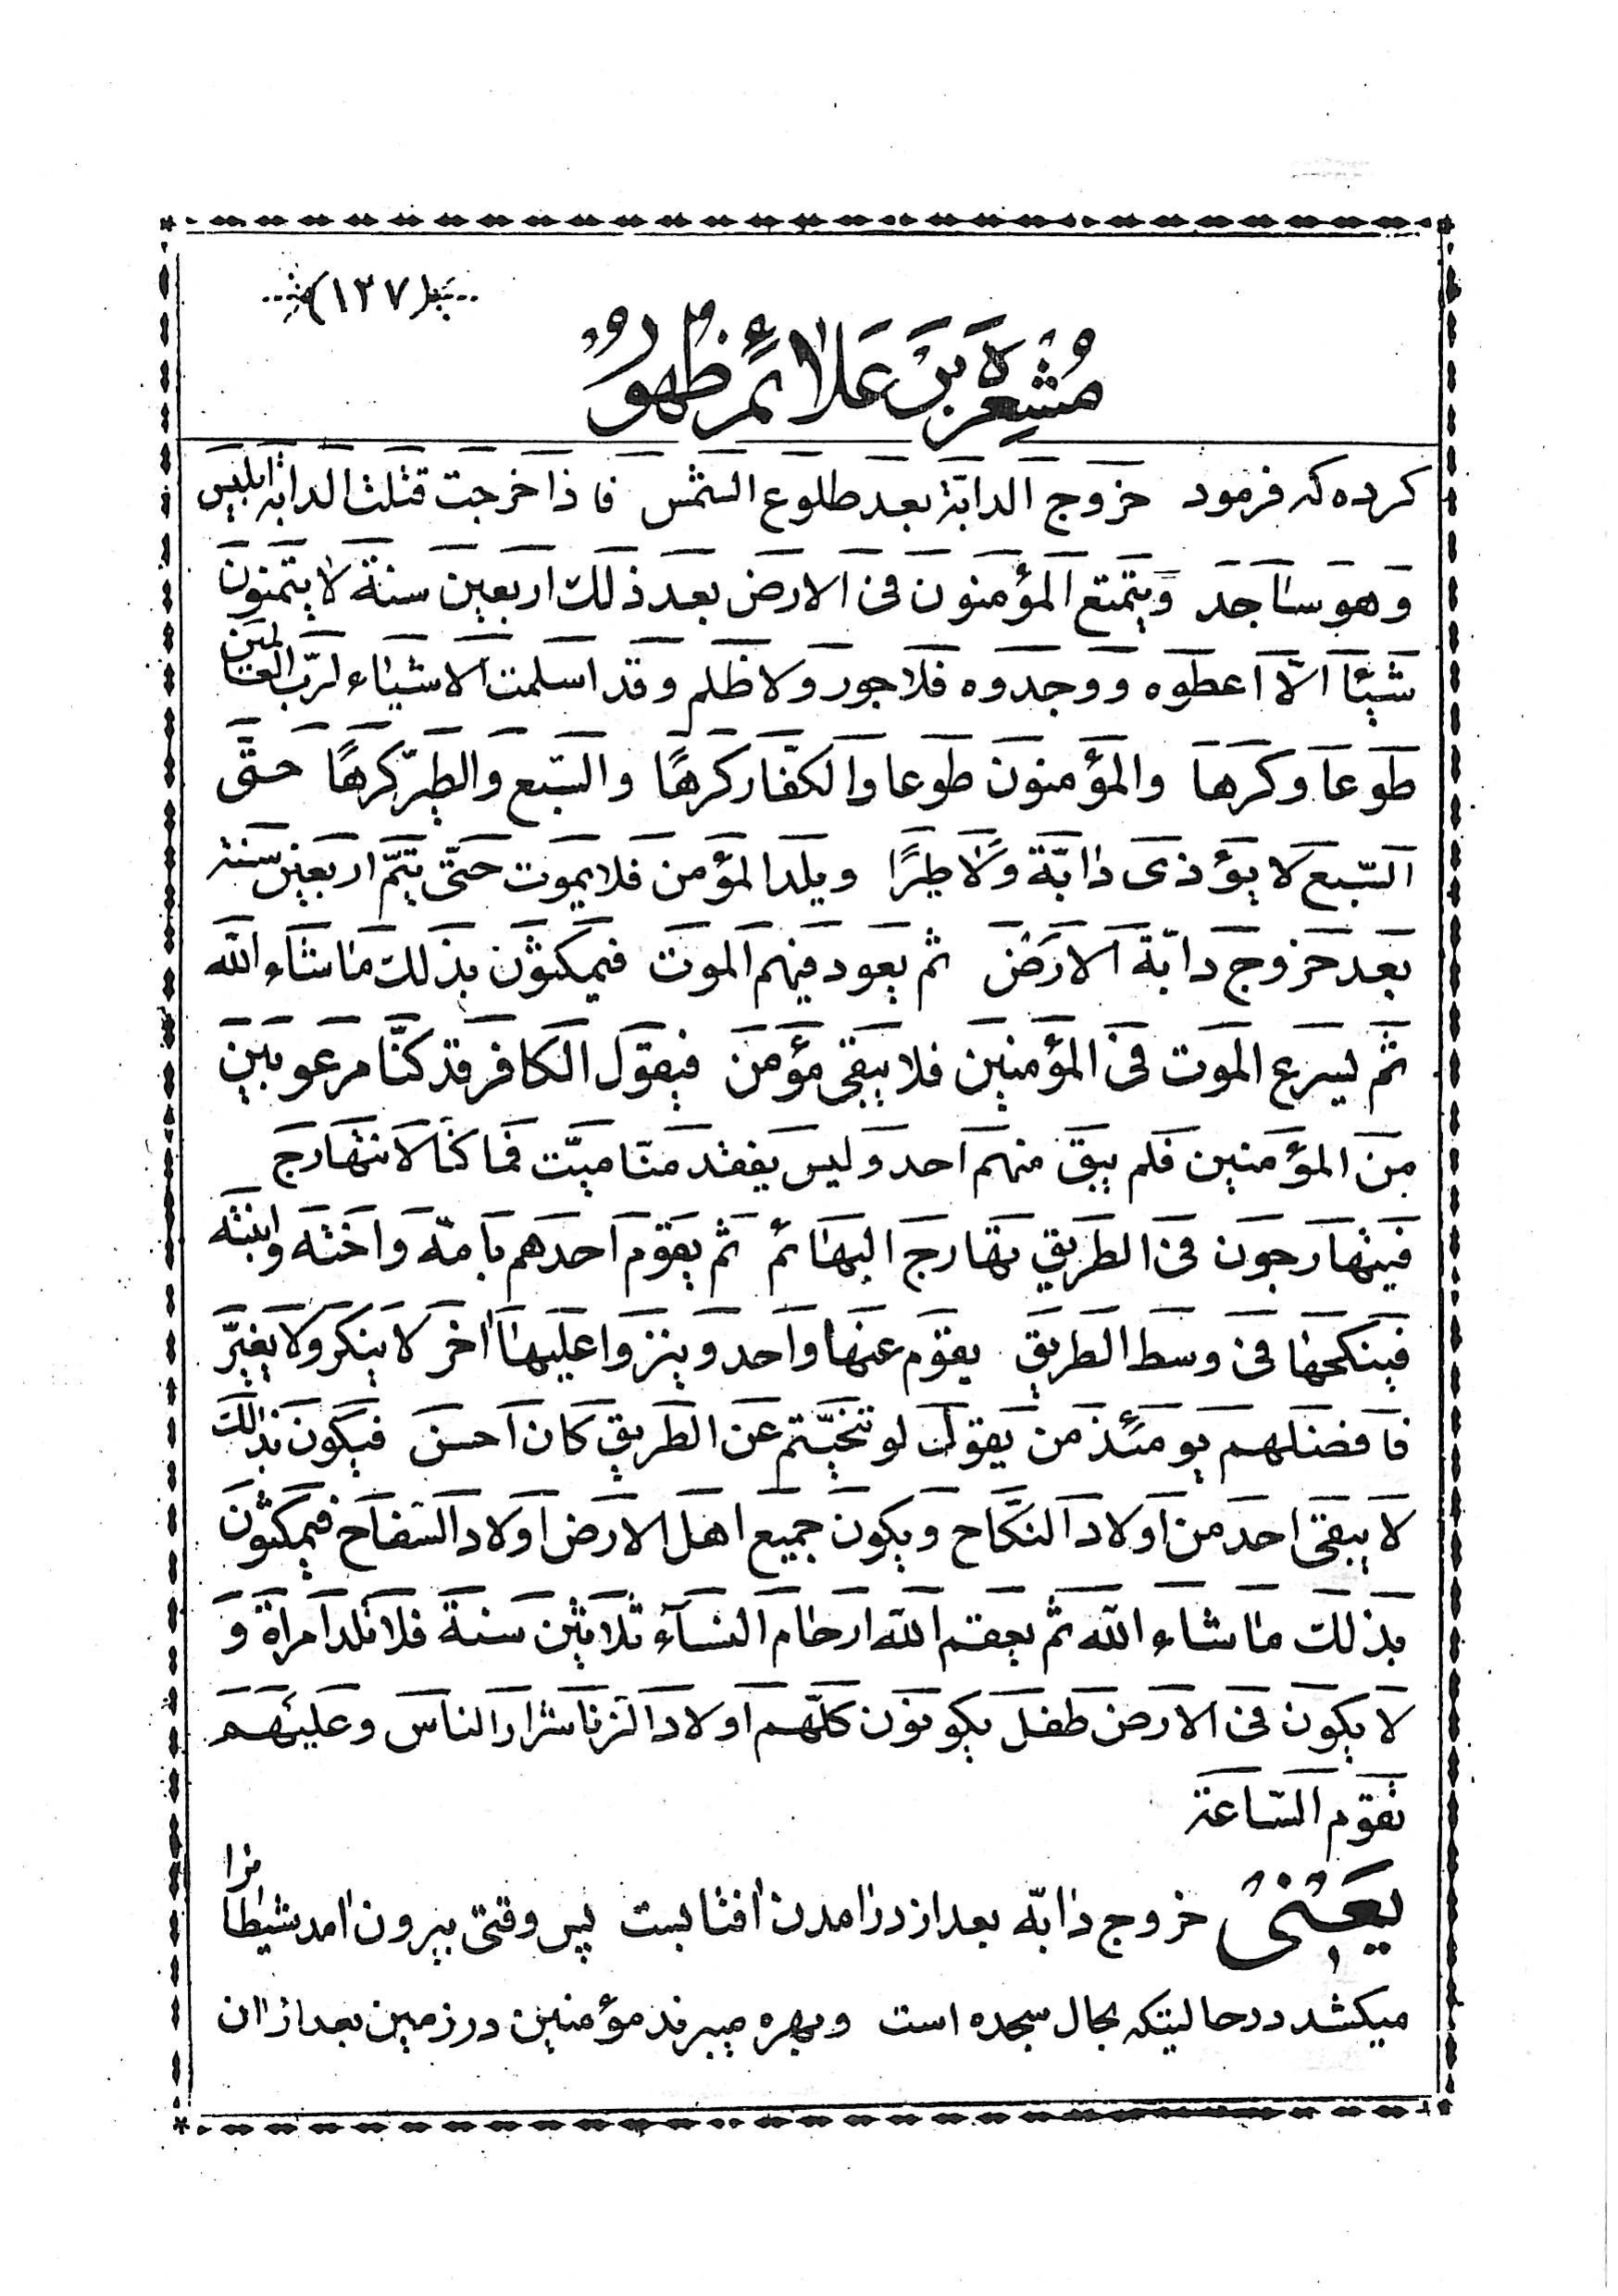 (۱۲۷)
مُشعِرَة بَر عَلائم ظهُور
کرده که فرمود خروج الدابّة بعد طلوع الشمس فاذا خرجت قتلت الدابة ابلیس
وهو ساجد ویتمتع المؤمنون فی الارض بعد ذلک اربعین سنة لا یتمنون
شیئا الّا اعطوه ووجدوه فلا جور ولا ظلم وقد اسلمت الاشیاء لربّ العالمین
طوعا وکرها والمؤمنون طوعا والکفار کرهًا والسّبع والطیر کرهًا حتّی
السّبع لا یؤذی دابّة ولا طیرًا ویلد المؤمن فلا یموت حتّی یتمّ اربعین سنة
بعد خروج دابّة الارض ثم یعود فیهم الموت فیمکثون بذلک ما شاء الله
ثم یسرع الموت فی المؤمنین فلا یبقی مؤمن فیقول الکافر قد کنّا مرعوبین
من المؤمنین فلم یبق منهم احد ولیس یفقد منا میّت فما کنا لا نتهارج
فیتهارجون فی الطریق تهارج البهائم ثم یقوم احدهم بامّه واخته وابنته
فینکحها فی وسط الطریق یقوم عنها واحد وینزوا علیها اخر لا ینکر ولا یغیّر
فافضلهم یومئذ من یقول لو تنحّیتم عن الطریق کان احسن فیکون بذلک
لا یبقی احد من اولاد النکاح ویکون جمیع اهل الارض اولاد السّفاح فیمکثون
بذلک ما شاء الله ثم یعقم الله ارحام النسآء ثلاثین سنة فلا تلد امراة و
لا یکون فی الارض طفل یکونون کلّهم اولاد الزنا شرار الناس وعلیهم
تقوم السّاعة
یعنی خروج دابّه بعد از درامدن افتابست پس وقتی بیرون امد شیطانرا
میکشد درحالیتکه بحال سجده است وبهره میبرند مؤمنین در زمین بعد از ان